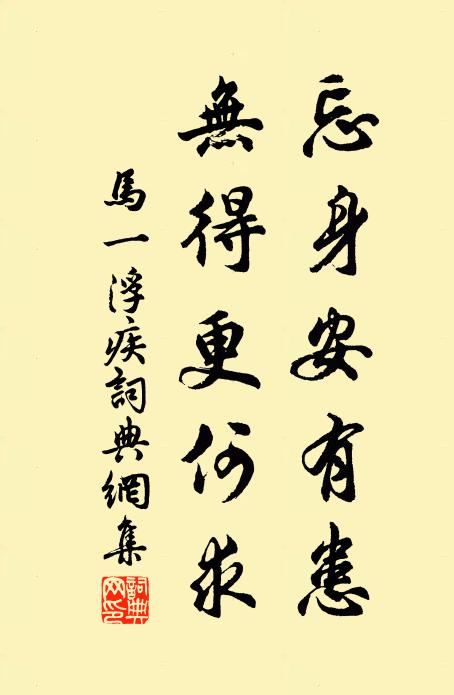 忘身安有患
無得更何求
馬一浮疾詞典網集
詞典網印